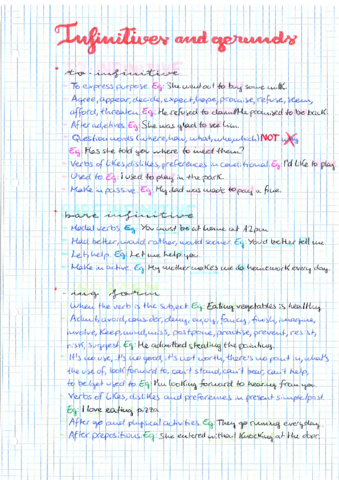 Infinitives and gerunds
· to-infinitive
- To express purpose Eg: She went out to buy some milk.
- Agree, appear, decide, expect, hope, promise, refuse, seem,
afford, threaten. Eg: He refused to claim/He promised to be back.
- After adjetives Eg: She was glad to see him.
- Question words (where, how, what, who, which) NOT why
Eg: Has she told you where to meet them?
- Verbs of likes, dislikes, preferences in conditional Eg I'd like to play
- Used to. Eg: I used to play in the park.
- Make in passive. Eg: My dad was made to pay a fine.
· bare infinitive
- Modal verbs Eg: You must be at home at 12pm
- Had better, would rather, would sooner. Eg: You'd better tell me.
- Let, help. Eg: Let me help you.
- Make in active. Eg: My mother makes me do homework every day.
· -ing form
- When the verb is the subject Eg: Eating vegetables is healthy.
- Admit, avoid, consider, deny, enjoy, fancy, finish, imagine,
involve, keep, mind, miss, postpone, practise, prevent, resist,
risk, suggest. Eg: He admitted stealing the painting.
- It's no use, it's no good, it's not worth, there's no point in, what's
the use of, look forward to, can't stand, can't bear, can't help,
to be/get used to Eg: I'm looking forward to hearing from you
- Verbs of likes, dislikes and preferences in present simple/past.
Eg: I love eating pizza.
- After go and physical activities Eg: They go running every day.
- After prepositions Eg: She entered without knocking at the door.